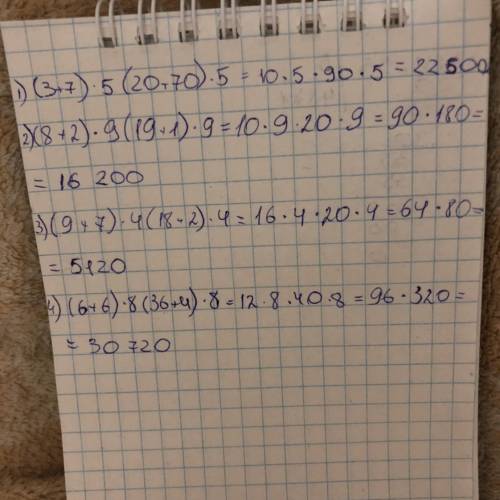 1) (3+7)·5(20+70)·5=10·5·90·5=22500
2)(8+2)·9(19+1)·9=10·9·20·9=90·180=
=16 200
3)(9+7)·4(18+2)·4=16·4·20·4=64·80=
=5120
4)(6+6)·8(36+4)·8=12·8·40·8=96·320=
=30 720